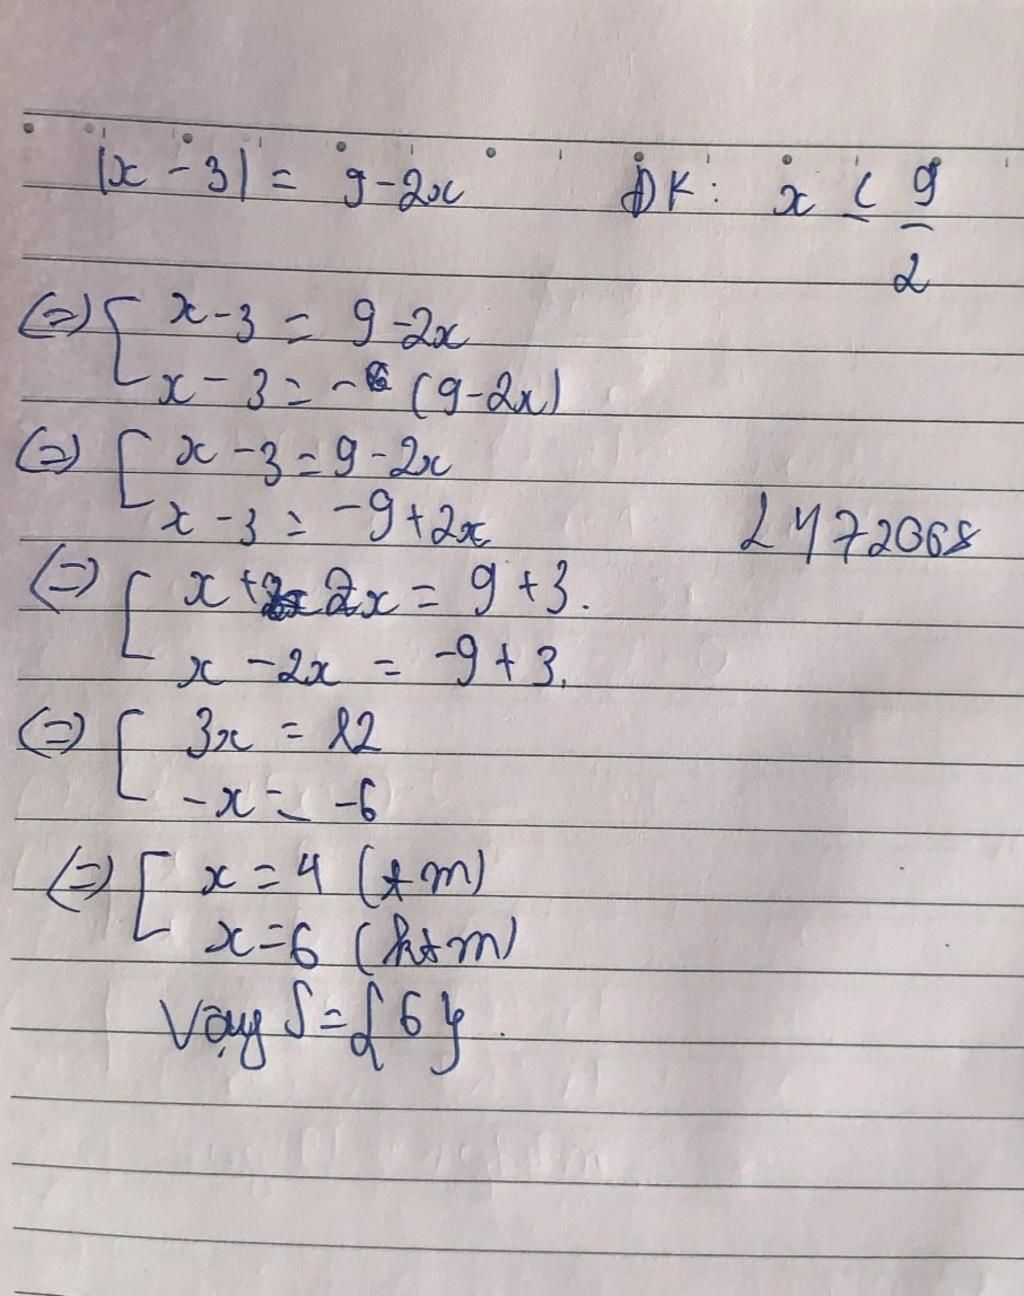 |x - 3| = 9 - 2x ĐK: x ≤ 9/2
(=) [ x - 3 = 9 - 2x
x - 3 = - (9 - 2x)
(=) [ x - 3 = 9 - 2x
x - 3 = -9 + 2x
L472068
(=) [ x + 2x = 9 + 3.
x - 2x = -9 + 3.
(=) [ 3x = 12
-x = -6
(=) [ x = 4 (tm)
x = 6 (ktm)
Vậy S = {6}.